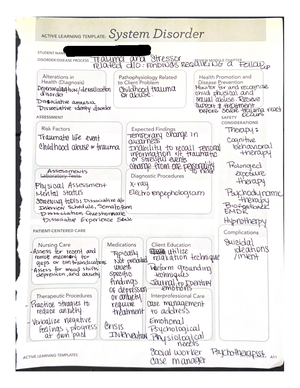 ACTIVE LEARNING TEMPLATE: System Disorder
STUDENT NAME
DISORDER/DISEASE PROCESS Trauma and Stressor
related dis. findings
Alterations in
Health (Diagnosis)
Depersonalization/derealization
disorder
Dissociative amnesia
Dissociative identity disorder
Pathophysiology Related
to Client Problem
Childhood trauma
or abuse
Health Promotion and
Disease Prevention
Monitor for and recognize
child physical and
sexual abuse. Receive
support & treatment
before
ASSESSMENT
SAFETY
CONSIDERATIONS
Risk Factors
Traumatic life event
Childhood abuse or trauma
Expected Findings
Temporary change in
awareness
Inability to recall personal
information r/t traumatic
or stressful events
Change from one personality
Assessments
Laboratory Tests
Physical Assessment
Mental Status
Interview Schedule, Somatoform
Dissociation Questionnaire
Dissociative Experience Scale
Diagnostic Procedures
X-ray
Electroencephalogram
Therapy:
Cognitive
behavioral
therapy
Prolonged
exposure
therapy
Psychodynamic
therapy
Biofeedback
EMDR
Hypnotherapy
PATIENT-CENTERED CARE
Complications
Suicidal
ideations
/intent
Nursing Care
Assess for recent and
remote memory for
gaps or contradictions
Assess for mood shifts,
depression, and anxiety
Medications
Typically
not provided
unless
specific
findings
of depression
or anxiety
require
treatment
Crisis
Intervention
Client Education
utilize
relaxation technique
Perform grounding
techniques
Journal to identify
emotions
Therapeutic Procedures
Practice strategies
to reduce
anxiety
Verbalize negative
feelings, progress
at own pace
Interprofessional Care
Case management
to address
Emotional
Psychological
Physiological
needs
Social worker Psychotherapist
Case manager
ACTIVE LEARNING TEMPLATES
A11